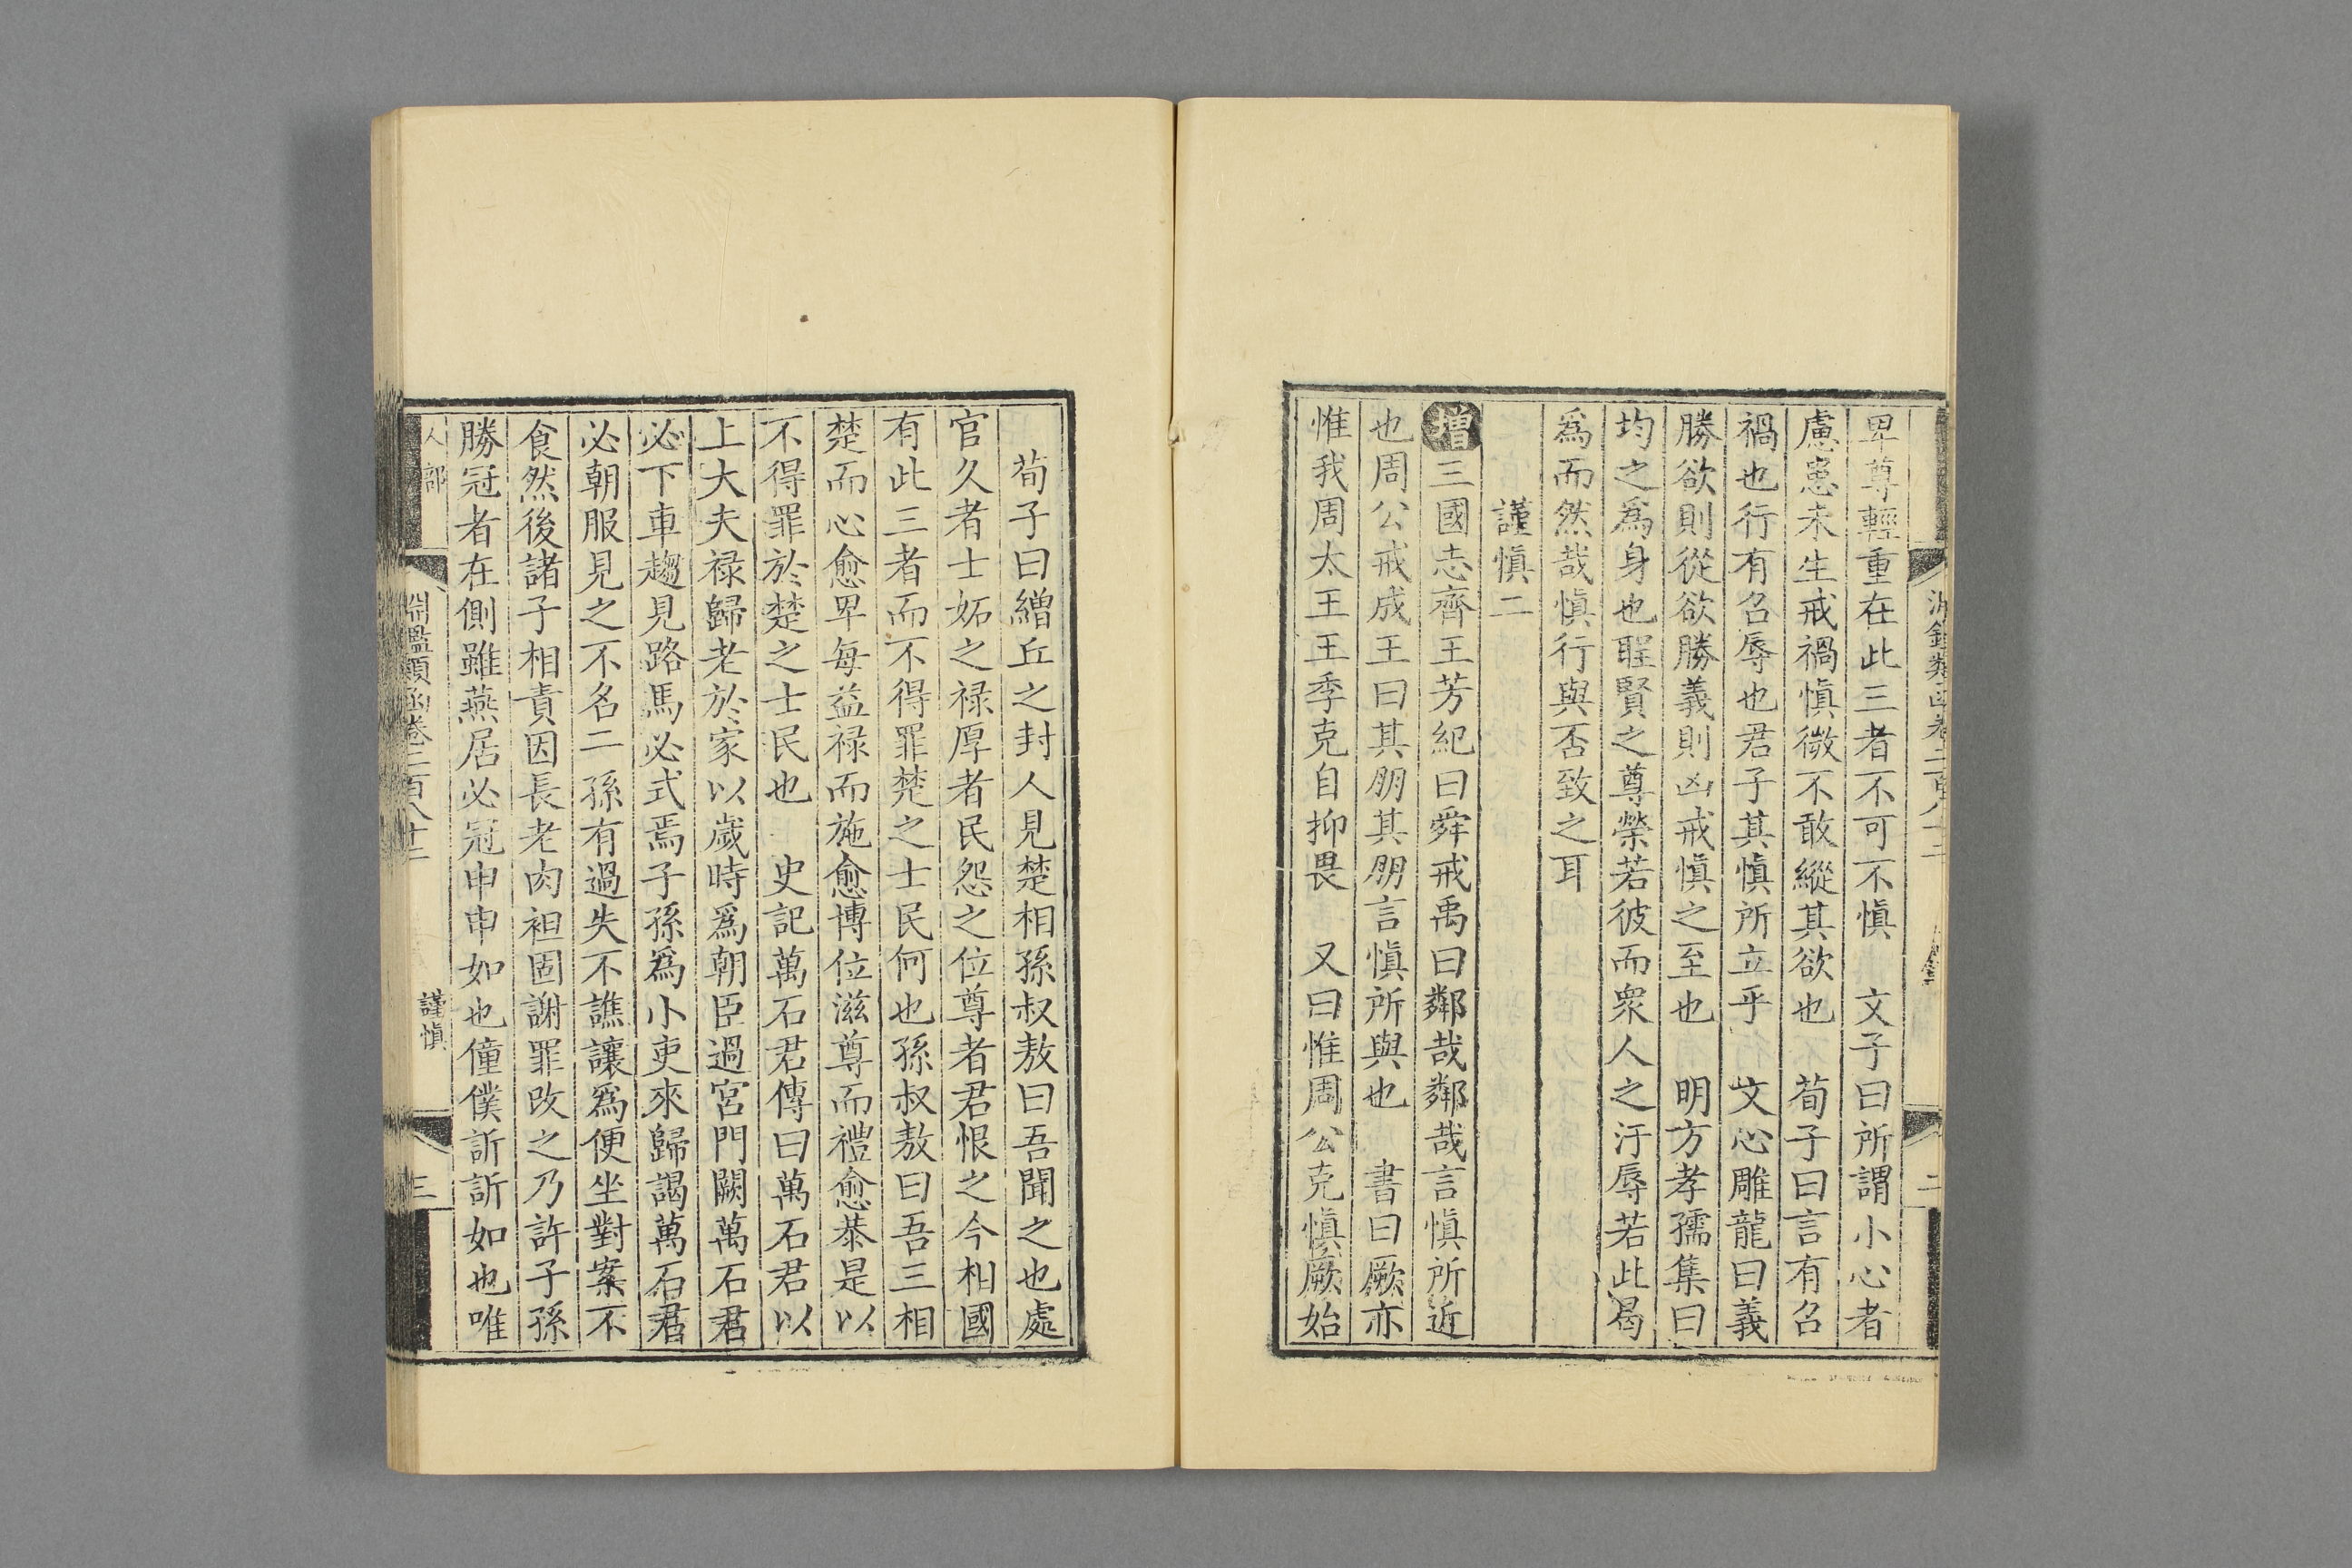 卑尊輕重在此三者不可不慎　文子曰所謂小心者
慮患未生戒禍慎微不敢縱其欲也　荀子曰言有召
禍也行有召辱也君子其慎所立乎　文心雕龍曰義
勝欲則從欲勝義則凶戒慎之至也　明方孝孺集曰
均之爲身也聖賢之尊榮若彼而衆人之汙辱若此曷
爲而然哉慎行與否致之耳
謹慎二
增三國志齊王芳紀曰舜戒禹曰鄰哉鄰哉言慎所近
也周公戒成王曰其朋其朋言慎所與也　書曰厥亦
惟我周太王王季克自抑畏　又曰惟周公克慎厥始
荀子曰繒丘之封人見楚相孫叔敖曰吾聞之也處
官久者士妬之祿厚者民怨之位尊者君恨之今相國
有此三者而不得罪楚之士民何也孫叔敖曰吾三相
楚而心愈卑每益祿而施愈博位滋尊而禮愈恭是以
不得罪於楚之士民也　史記萬石君傳曰萬石君以
上大夫祿歸老於家以歲時爲朝臣過宮門闕萬石君
必下車趨見路馬必式焉子孫爲小吏來歸謁萬石君
必朝服見之不名二孫有過失不譙讓爲便坐對案不
食然後諸子相責因長老肉袒固謝罪改之乃許子孫
勝冠者在側雖燕居必冠申申如也僮僕訢訢如也唯
人部　淵鑑類函卷二百八十二　謹慎　三